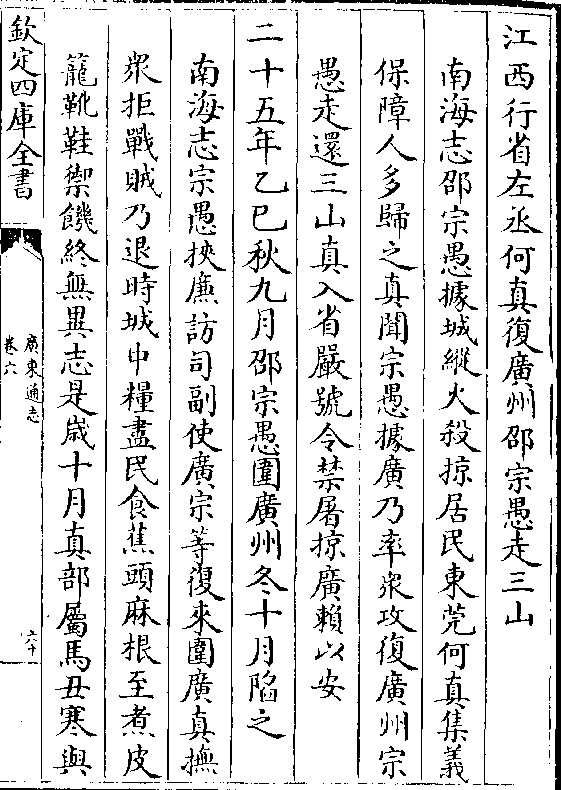 江西行省左丞何真復廣州邵宗愚走三山
南海志邵宗愚據城縱火殺掠居民東莞何真集義
保障人多歸之真聞宗愚據廣乃率衆攻復廣州宗
愚走還三山真入省嚴號令禁屠掠廣賴以安
二十五年乙巳秋九月邵宗愚圍廣州冬十月陷之
南海志宗愚挾廉訪司副使廣宗等復來圍廣真撫
衆拒戰賊乃退時城中糧盡民食蕉頭麻根至煮皮
籠靴鞋禦饑終無異志是歲十月真部屬馬丑寒與
欽定四庫全書
廣東通志
卷六
六十